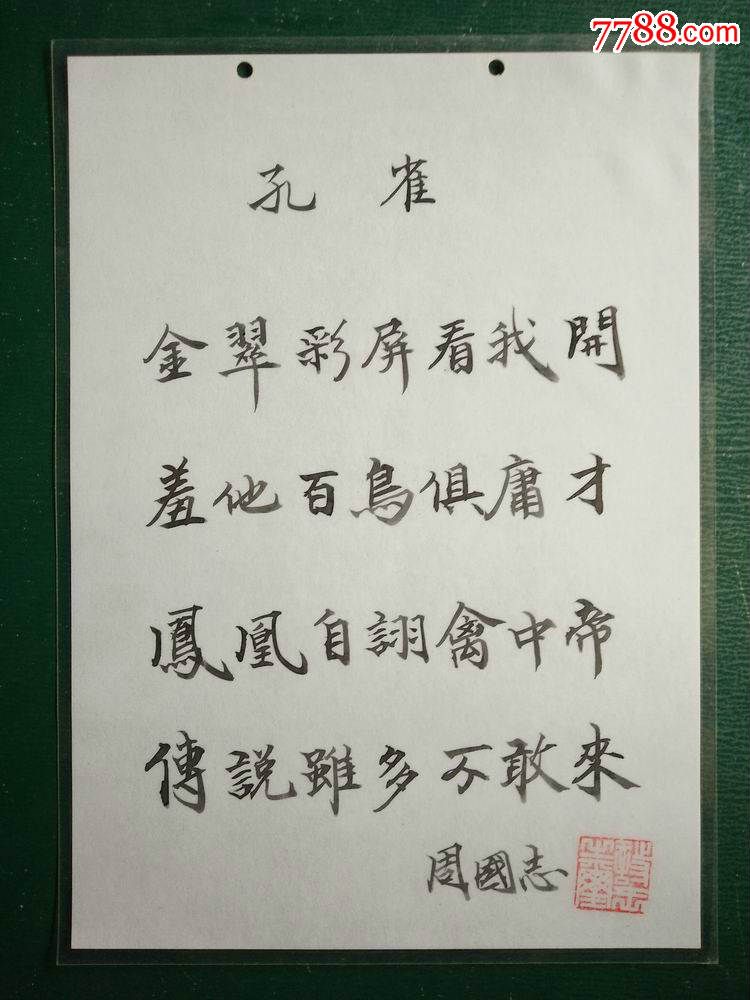 7788.com
孔雀
金翠彩屏看我開
羞他百鳥俱庸才
鳳凰自詡禽中帝
傳説雖多不敢來
周國志